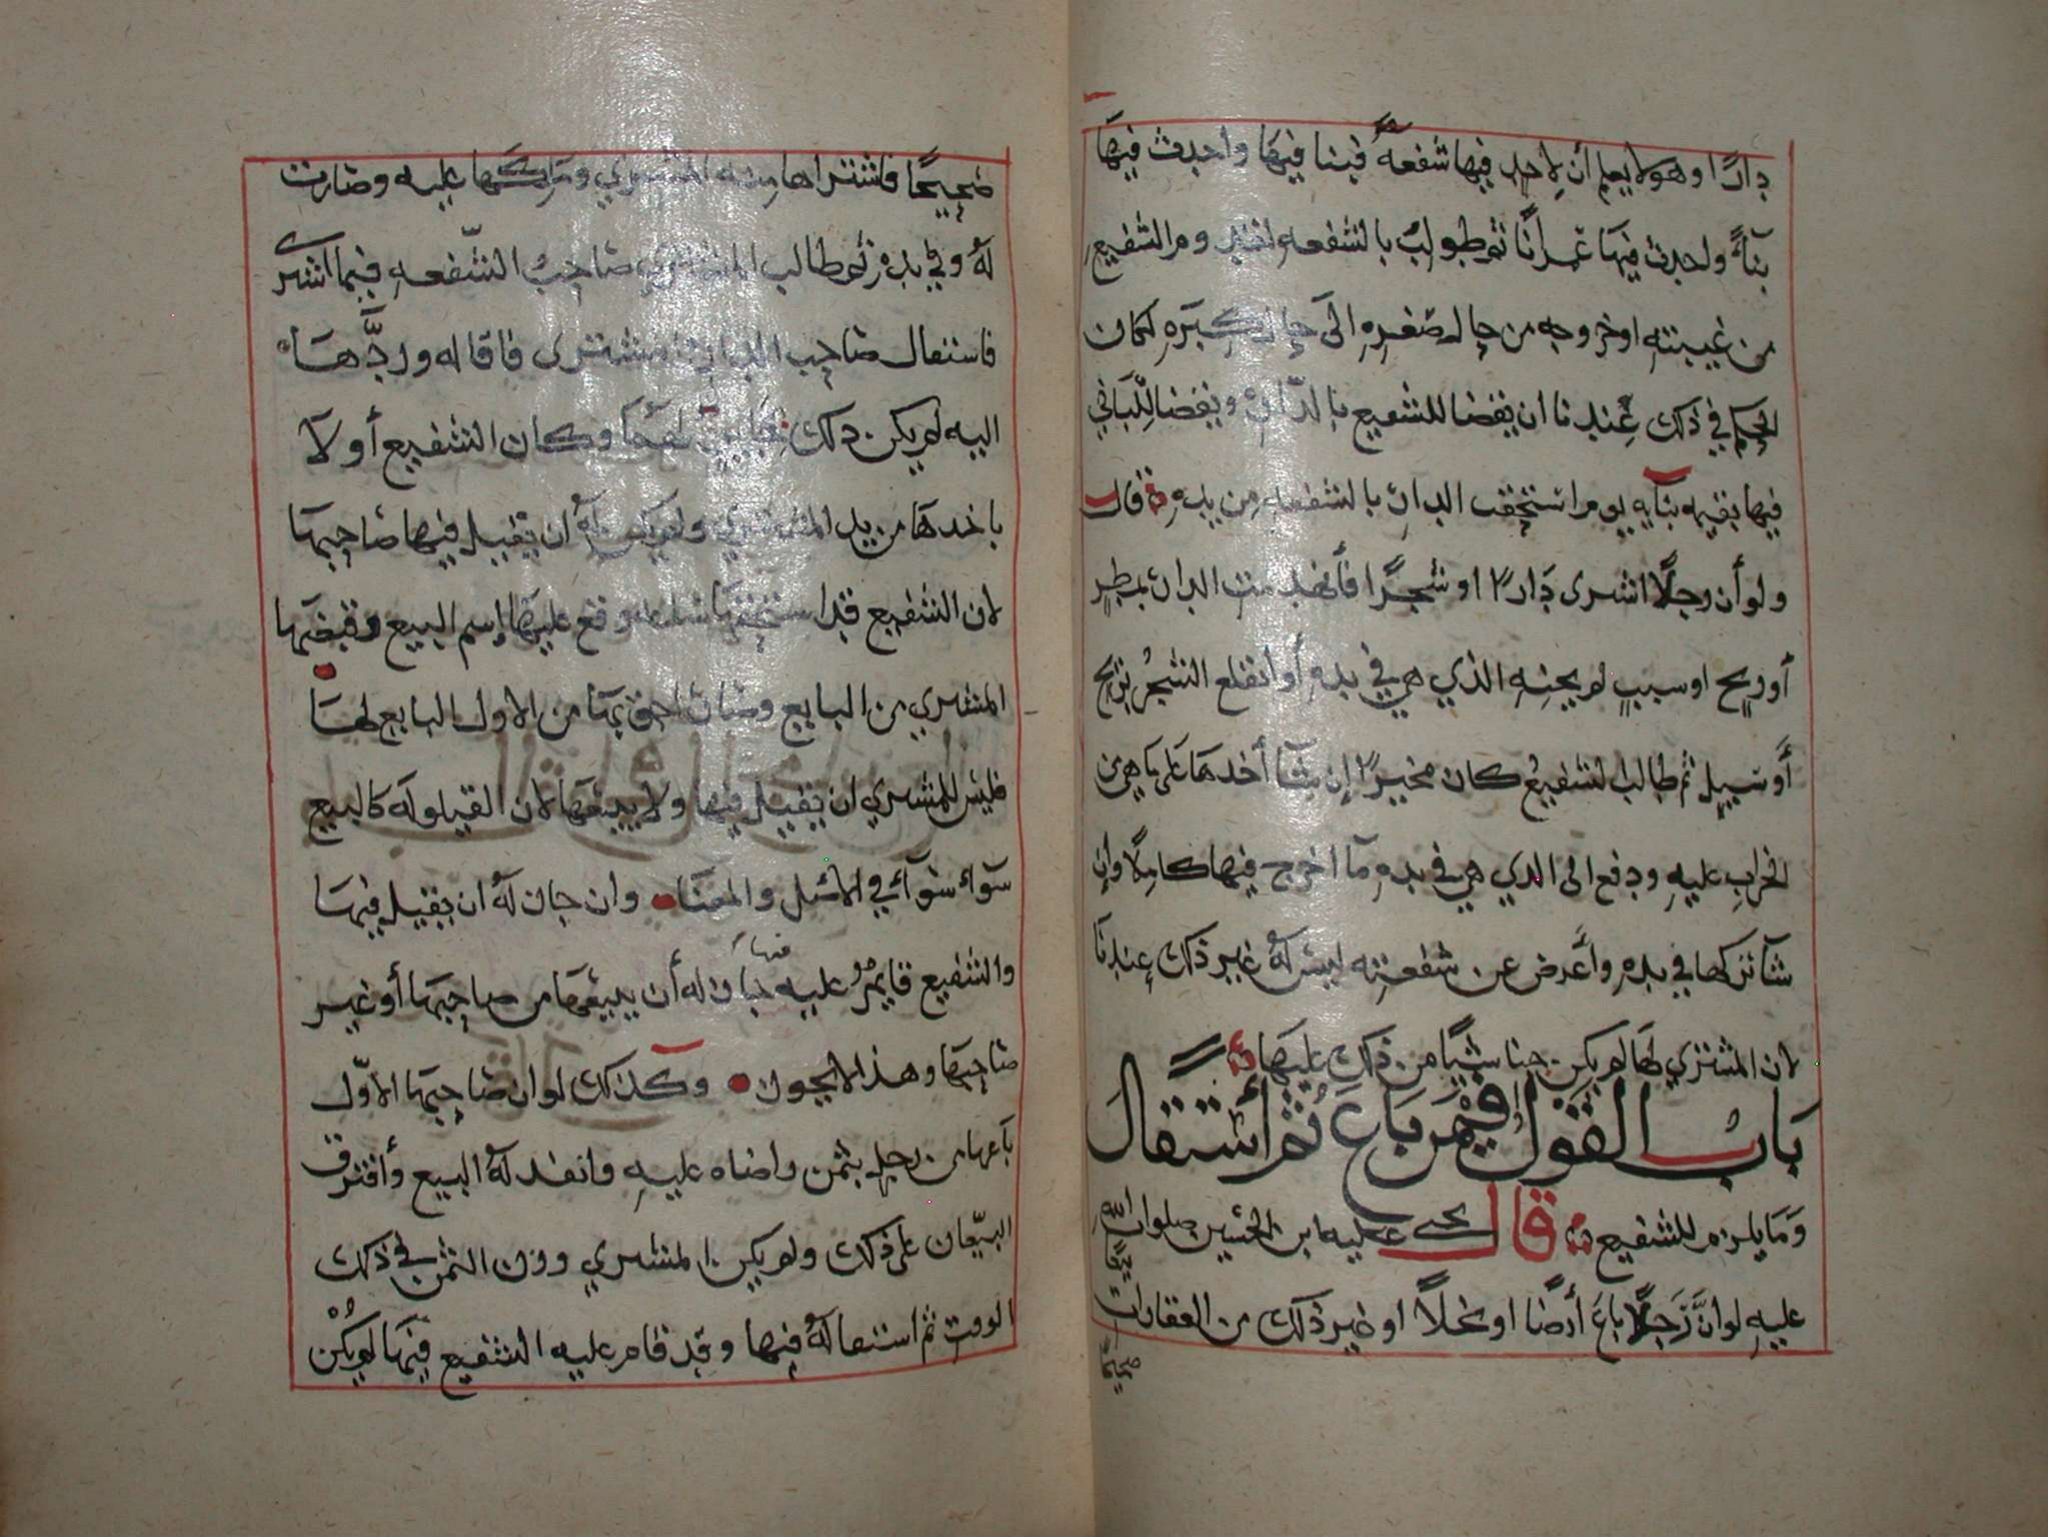 دارًا وهو لا يعلم أن لأحد فيها شفعهً فبنا فيها واحدث فيها
بناءً واحدث فيها عمرانًا ثم طولب بالشفعه لقدوم الشفيع
من غيبته او خروجه من حال صغره الى حال كبره لكان
الحكم في ذلك عندنا ان يقضا للشفيع بالدار ويقضا للباني
فيها بقيمه بنآيه يوم استحقت الدار بالشفعه من يده قال
ولو أن رجلًا اشترى دارًا او شجرًا فأنهدمت الدار بمطرٍ
أو ريح او سببٍ لم يجنه الذي هي في يده أو أنقلع الشجر بريح
أو سيل ثم طالب الشفيع كان مخيرًا إن شآ أخدها على ما هي من
الخراب عليه ودفع الى الدي هي في يده مآ اخرج فيها كاملًا وان
شآ تركها في يده وأعرض عن شفعته ليس لهُ غير ذلك عندنا
لان المشتري لها لم يكن جنا شيًا من ذلك عليها
باب القول فيمن باع ثم أستقال
وما يلزم للشفيع قال يحيى عليه ابن الحسين صلوات الله
عليه لو انَّ رجلًا باع أرضًا او نخلًا او غير ذلك من العقارات
بيعًا
صحيحًا
صحيحًا فاشتراها منه المشتري وملكها عليه وصارت
لهُ وفي يده ثم طالب المشتري صاحب الشّفعه فيما اشترى
فاستقال صاحب الدار المشتري فاقاله وردَّها
اليه لم يكن دلك وكان الشفيع أولا
باخدها من يد المشتري ولم يكن لهُ أن يقيل فيها صاحبها
لان الشفيع قد استحقها ساعه وقع عليها إسم البيع وقبضها
المشتري من البايع وصار احق بها من الاول البايع لها
فليس للمشتري ان يقيل فيها ولا يبيعها لان القيلوله كالبيع
سوآء سوآء في الاصل والمعنا وان جاز لهُ ان يقيل فيها
والشفيع قايمٌ عليه فيها جاز له أن يبيعها من صاحبها أو غير
صاحبها وهذا لا يجوز وكذلك لو ان صاحبها الاوّل
باعها من رجلٍ بثمن راضاه عليه وانفد لهُ البيع وأفترق
البيّعان على ذلك ولم يكن المشتري وزن الثمن في ذلك
الوقت ثم استقاله فيها وقد قام عليه الشفيع فيها لم يكُنْ